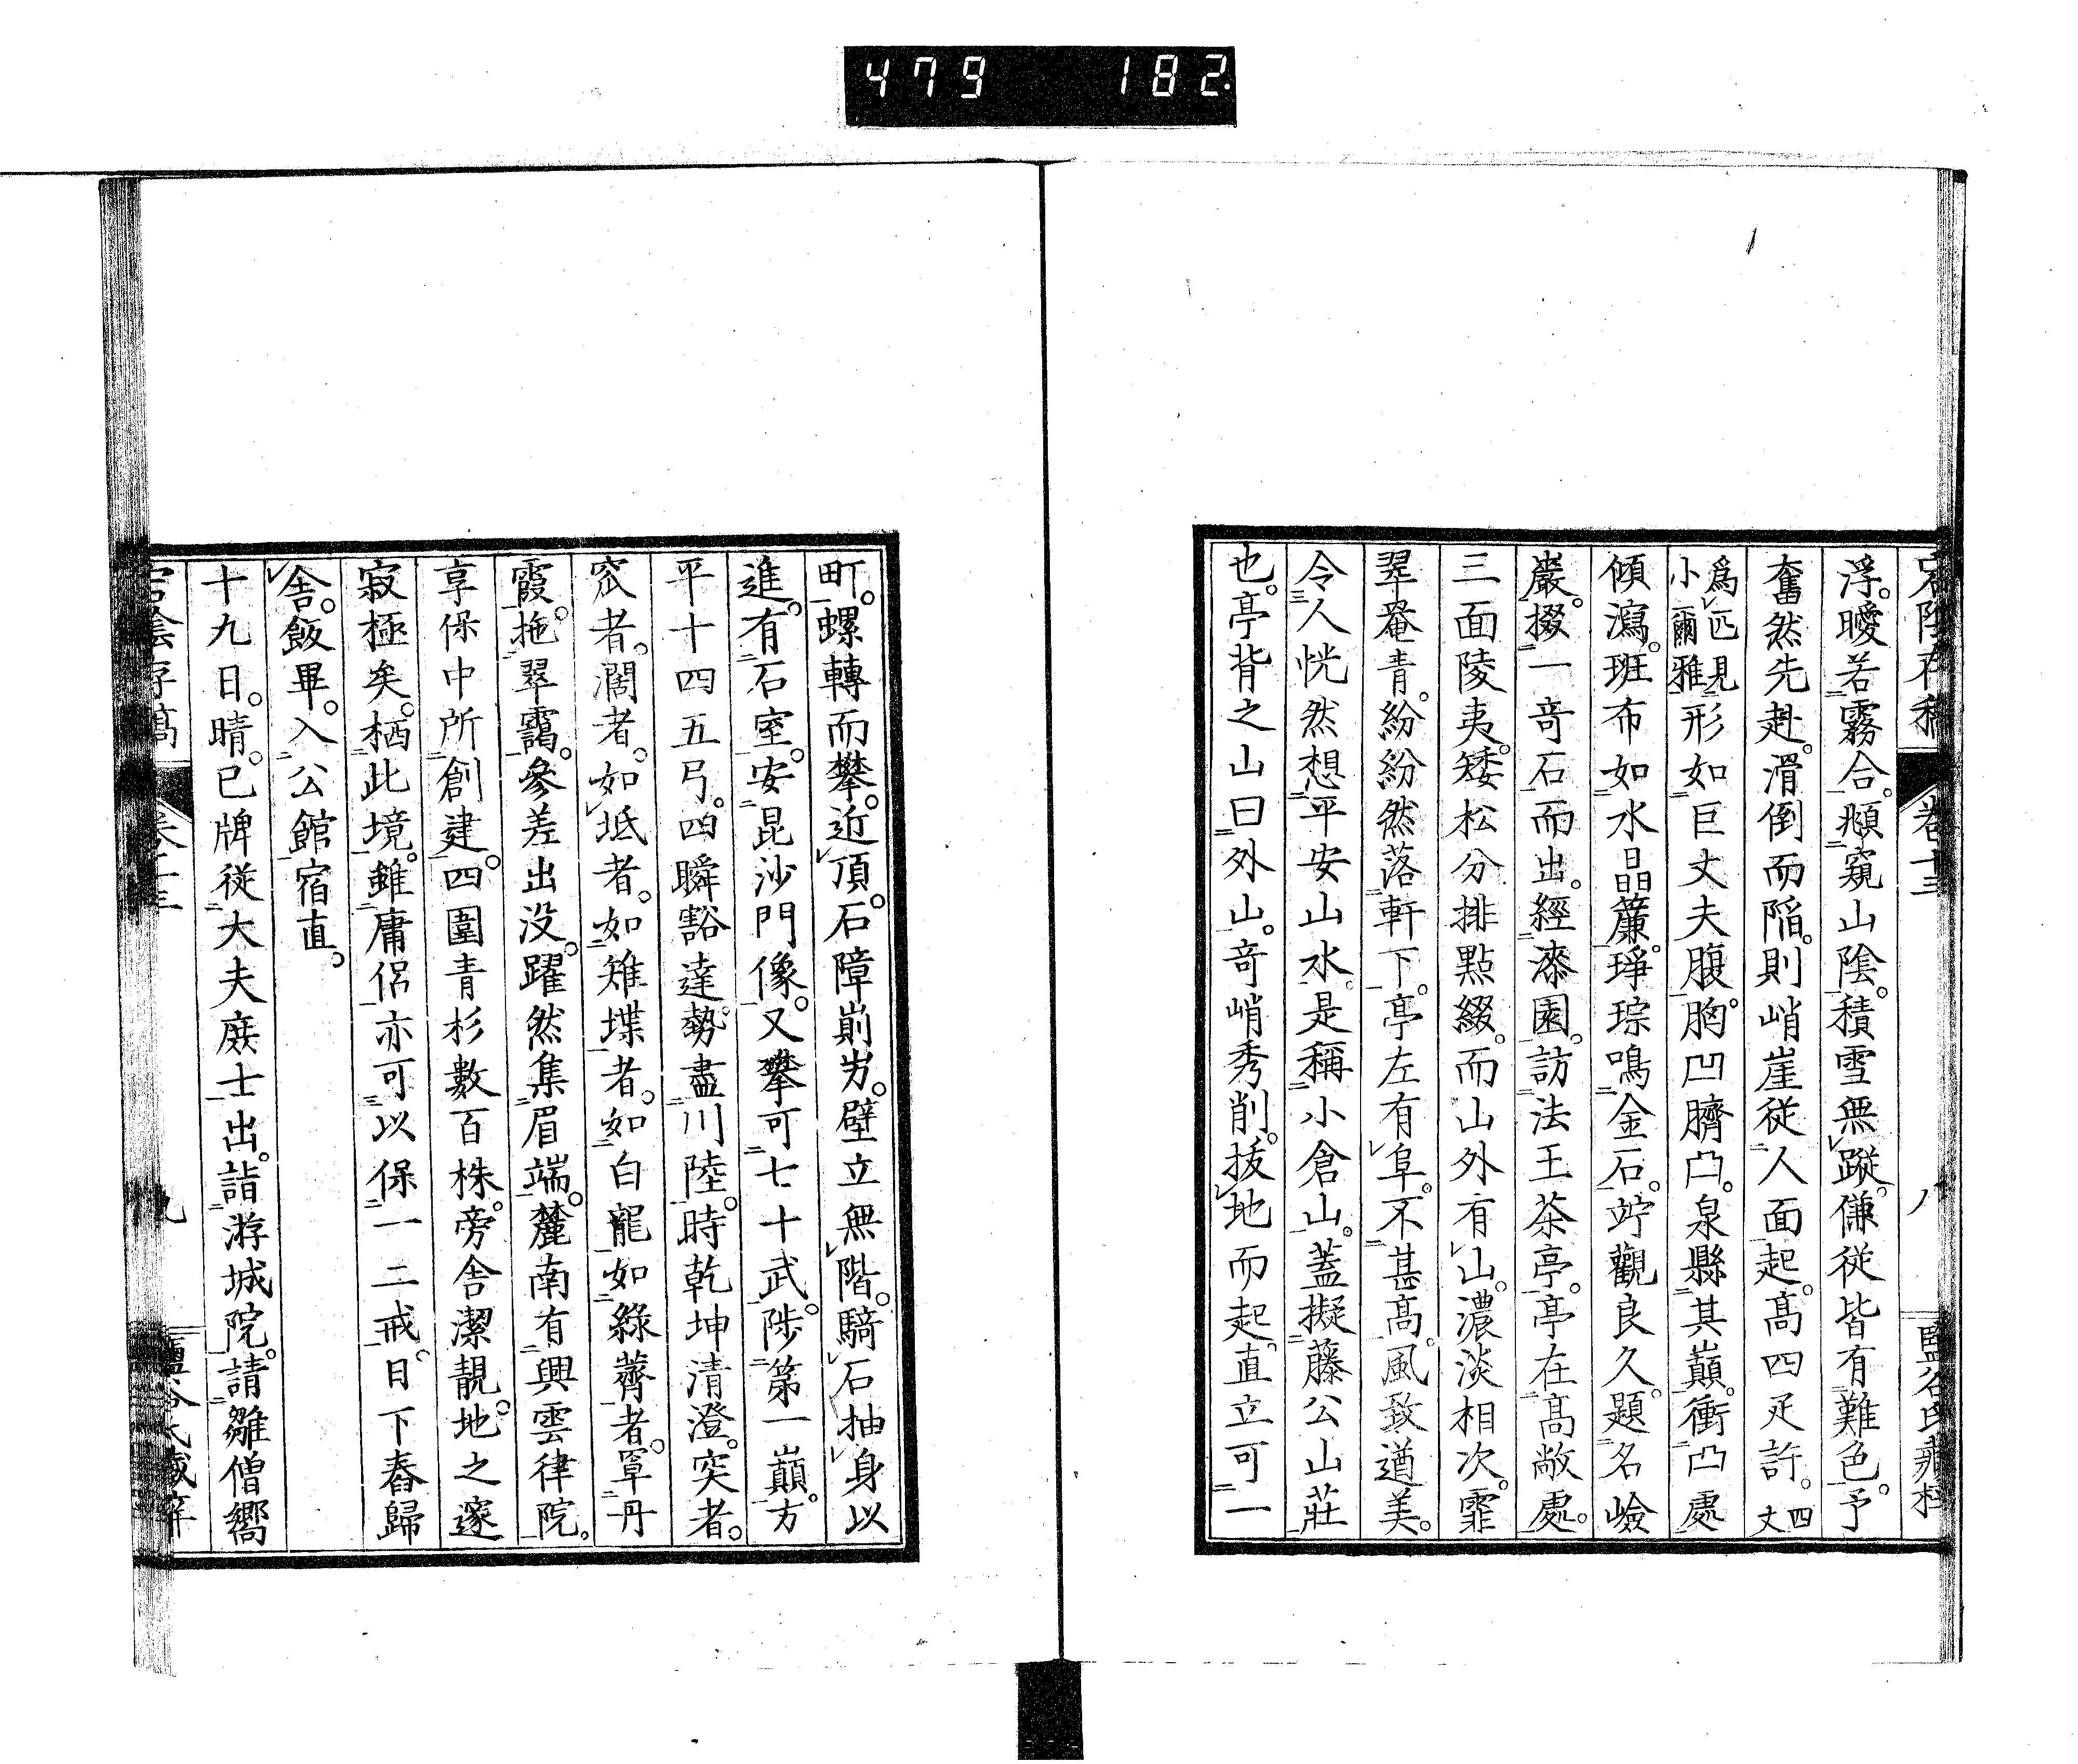 479 182
宕陰存稿 卷十三 八 鹽谷氏藏梓
浮。曖若霧合。頫窺山陰。積雪無蹤。傔從皆有難色。予
奮然先赴。滑倒而陷。則峭崖從人面起。高四疋許。四丈
爲匹見小爾雅形如巨丈夫腹。胸凹臍凸。泉縣其巔。衝凸處
傾瀉。班布如水晶簾。琤琮鳴金石。竚觀良久。題名嶮
巖。掇一奇石而出。經漆園。訪法王茶亭。亭在高敞處。
三面陵夷。矮松分排點綴。而山外有山。濃淡相次。霏
翠菴青。紛紛然落軒下。亭左有阜。不甚高。風致遒美。
令人恍然想平安山水。是稱小倉山。蓋擬藤公山莊
也。亭背之山曰外山。奇峭秀削。拔地而起。直立可一
町。螺轉而攀。近頂。石障崱屴。壁立無階。騎石抽身以
進。有石室。安昆沙門像。又攀可七十武。陟第一巔。方
平十四五弓。四瞬豁達。勢盡川陸。時乾坤清澄。突者。
窊者。濶者。如坻者。如雉堞者。如白龍如綠薺者。罩丹
霞。拖翠靄。參差出沒。躍然集眉端。麓南有興雲律院。
享保中所創建。四圍青杉數百株。旁舍潔靚。地之邃
寂極矣。栖此境。雖庸侶亦可以保一二戒。日下舂歸
舍。飯畢。入公館宿直。
十九日。晴。已牌從大夫庶士出。詣游城院。請雛僧嚮
宕陰存稿 卷十三 九 鹽谷氏藏梓